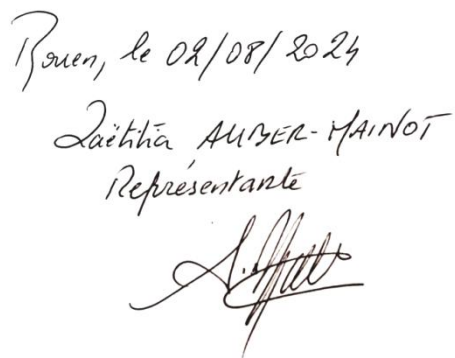 Rouen, le 02/08/2024
Laëtitia AUBER-MAINOT
Représentante